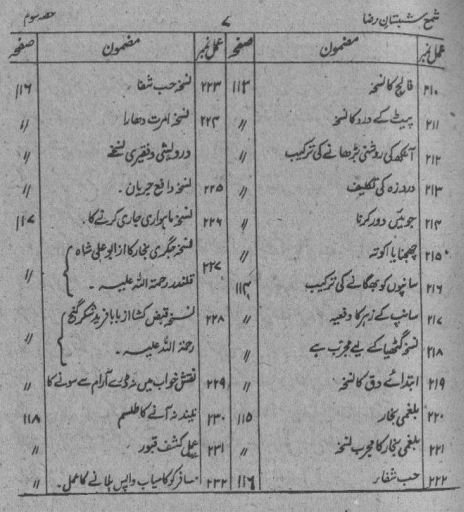 شمع شبستان رضا ۷ حصہ سوم
عمل نمبر مضمون صفحہ
۲۱۰ فالج کا نسخہ ۱۱۳
۲۱۱ پیٹ کے درد کا نسخہ 〃
۲۱۲ آنکھ کی روشنی بڑھانے کی ترکیب 〃
۲۱۳ دردزہ کی تکلیف 〃
۲۱۴ جوئیں دور کرنا 〃
۲۱۵ چھپنا یا اکوتہ 〃
۲۱۶ سانپوں کو بھگانے کی ترکیب ۱۱۴
۲۱۷ سانپ کے زہر کا دفعیہ 〃
۲۱۸ نسخہ گٹھیا کے لیے مجرب ہے 〃
۲۱۹ ابتدائے دق کا نسخہ 〃
۲۲۰ بلغمی بخار ۱۱۵
۲۲۱ بلغمی بخار کا مجرب نسخہ 〃
۲۲۲ حب شفاء ۱۱۶
عمل نمبر مضمون صفحہ
۲۲۳ نسخہ حب شفا ۱۱۶
۲۲۴ نسخہ امرت دھارا 〃
درویشی و فقیری نسخے 〃
۲۲۵ نسخہ دافع جریان ۔ 〃
۲۲۶ نسخہ ماہواری جاری کرنے کا ۔ ۱۱۷
۲۲۷ نسخہ جگری بخار کا از ابو علی شاہ
قلندر رحمتہ اللہ علیہ ۔ 〃
۲۲۸ نسخہ قبض کشا از بابا فرید شکر گنج
رحمتہ اللہ علیہ ۔ 〃
۲۲۹ نقش خواب میں نہ ڈرے آرام سے سونے کا 〃
۲۳۰ نیند نہ آنے کا طلسم ۱۱۸
۲۳۱ عمل کشف قبور 〃
۲۳۲ مسافر کو کامیاب واپس بلانے کا عمل ۔ 〃